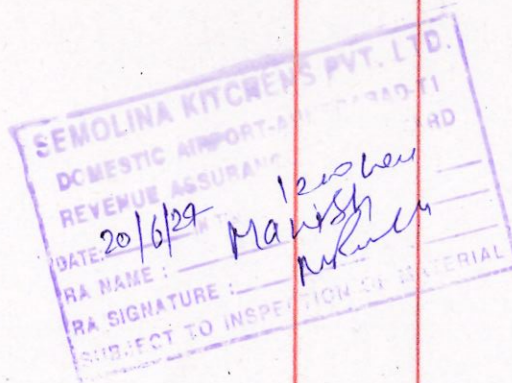 SEMOLINA KITCHENS PVT. LTD.
DOMESTIC AIRPORT-AHMEDABAD-T1
REVENUE ASSURANCE
DATE: 20/6/24
RA NAME: Manish
RA SIGNATURE:
SUBJECT TO INSPECTION OF MATERIAL